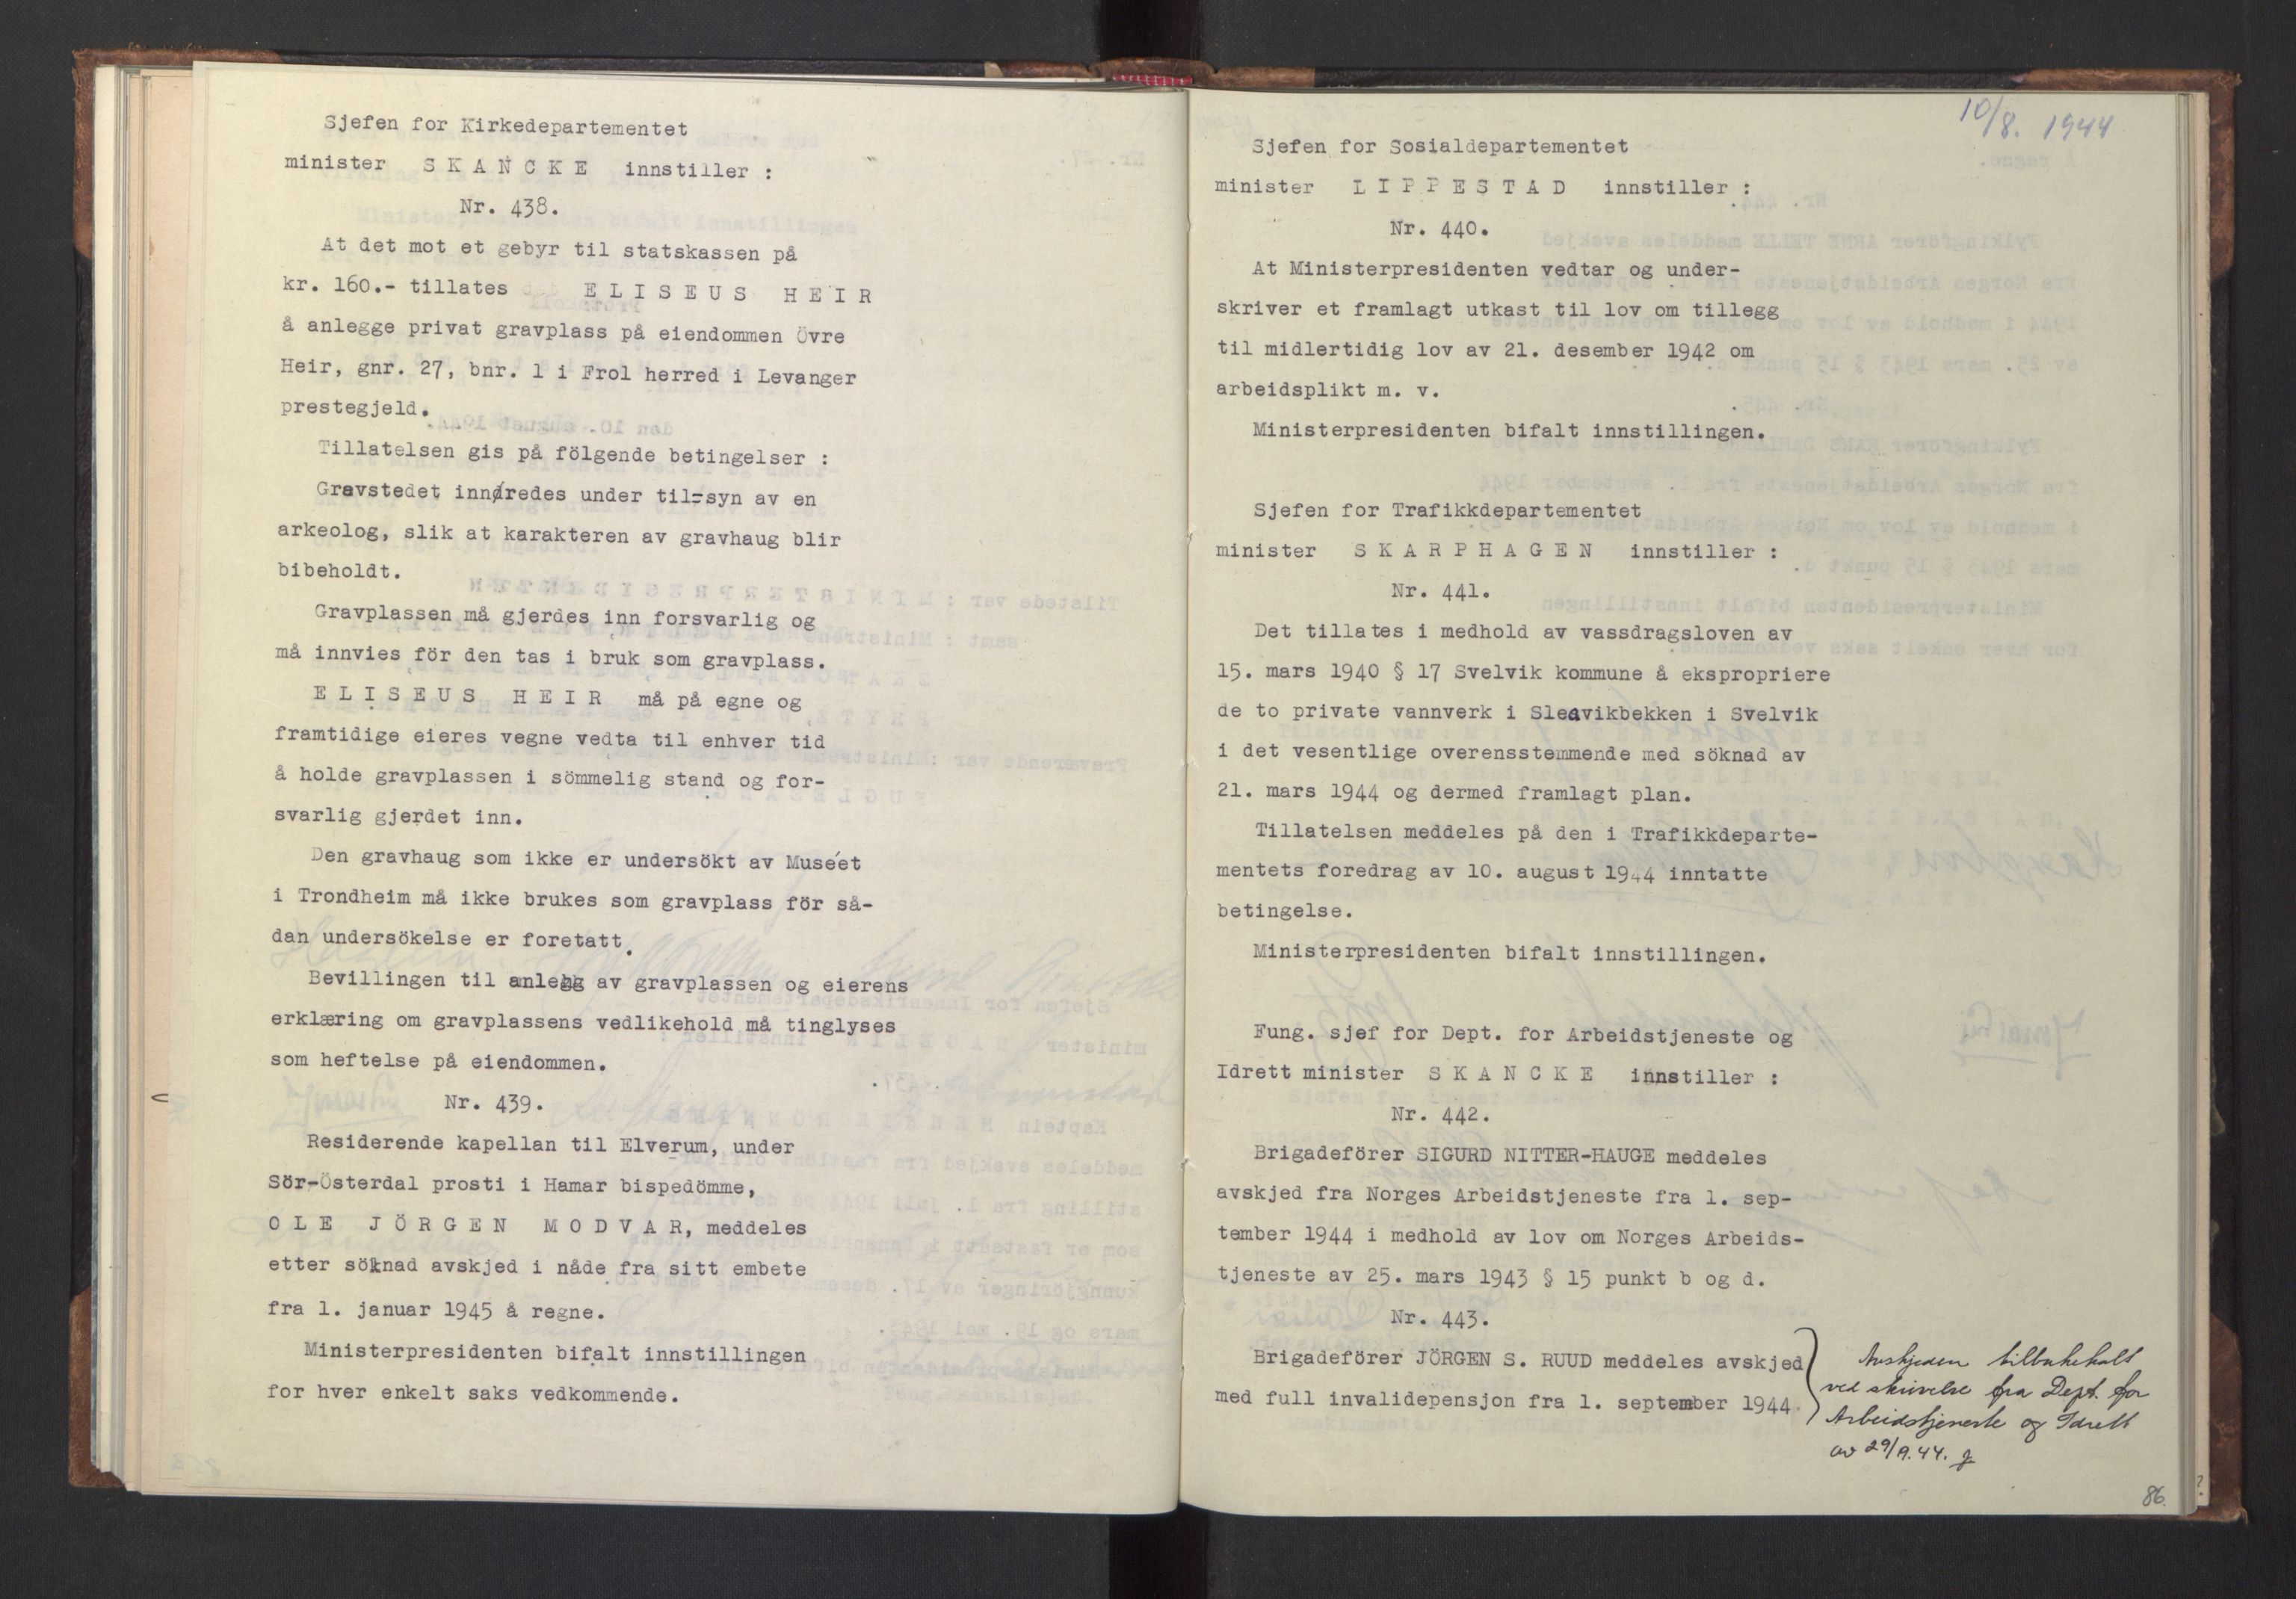 Sjefen for Kirkedepartementet
minister S K A N C K E innstiller :
Nr. 438.
At det mot et gebyr til statskassen på
kr. 160.- tillates E L I S E U S H E I R
å anlegge privat gravplass på eiendommen Övre
Heir, gnr. 27, bnr. 1 i Frol herred i Levanger
prestegjeld.
Tillatelsen gis på fölgende betingelser :
Gravstedet innredes under til-syn av en
arkeolog, slik at karakteren av gravhaug blir
bibeholdt.
Gravplassen må gjerdes inn forsvarlig og
må innvies för den tas i bruk som gravplass.
E L I S E U S H E I R må på egne og
framtidige eieres vegne vedta til enhver tid
å holde gravplassen i sömmelig stand og for-
svarlig gjerdet inn.
Den gravhaug som ikke er undersökt av Muséet
i Trondheim må ikke brukes som gravplass för så-
dan undersökelse er foretatt.
Bevillingen til anlegg av gravplassen og eierens
erklæring om gravplassens vedlikehold må tinglyses
som heftelse på eiendommen.
Nr. 439.
Residerende kapellan til Elverum, under
Sör-Österdal prosti i Hamar bispedömme,
O L E J Ö R G E N M O D V A R, meddeles
etter söknad avskjed i nåde fra sitt embete
fra 1. januar 1945 å regne.
Ministerpresidenten bifalt innstillingen
for hver enkelt saks vedkommende.
10/8. 1944
Sjefen for Sosialdepartementet
minister L I P P E S T A D innstiller :
Nr. 440.
At Ministerpresidenten vedtar og under-
skriver et framlagt utkast til lov om tillegg
til midlertidig lov av 21. desember 1942 om
arbeidsplikt m. v.
Ministerpresidenten bifalt innstillingen.
Sjefen for Trafikkdepartementet
minister S K A R P H A G E N innstiller :
Nr. 441.
Det tillates i medhold av vassdragsloven av
15. mars 1940 § 17 Svelvik kommune å ekspropriere
de to private vannverk i Sleavikbekken i Svelvik
i det vesentlige overensstemmende med söknad av
21. mars 1944 og dermed framlagt plan.
Tillatelsen meddeles på den i Trafikkdeparte-
mentets foredrag av 10. august 1944 inntatte
betingelse.
Ministerpresidenten bifalt innstillingen.
Fung. sjef for Dept. for Arbeidstjeneste og
Idrett minister S K A N C K E innstiller :
Nr. 442.
Brigadeförer SIGURD NITTER-HAUGE meddeles
avskjed fra Norges Arbeidstjeneste fra 1. sep-
tember 1944 i medhold av lov om Norges Arbeids-
tjeneste av 25. mars 1943 § 15 punkt b og d.
Nr. 443.
Brigadeförer JÖRGEN S. RUUD meddeles avskjed
med full invalidepensjon fra 1. september 1944.
Avskjeden tilbakekalt
ved skrivelse fra Dept. for
Arbeidstjeneste og Idrett
av 29/9.44.
86.